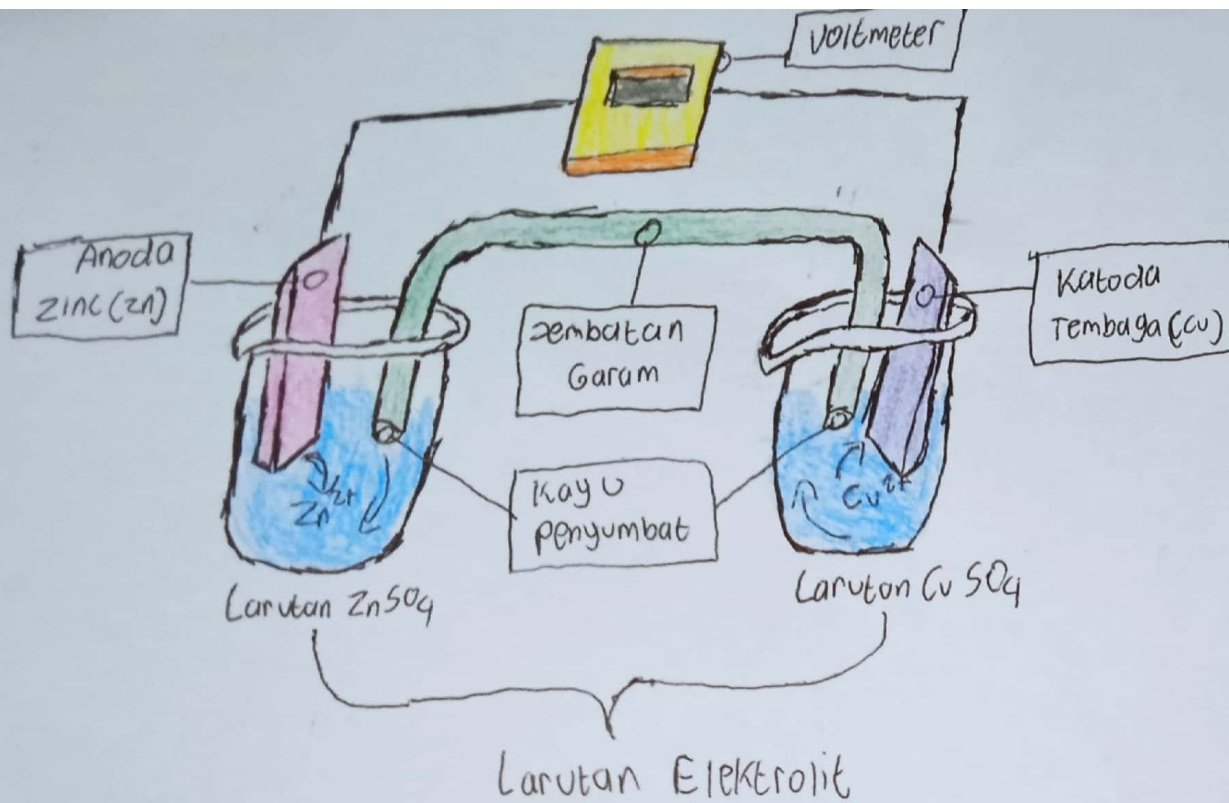 Voltmeter
Anoda
Zinc (Zn)
Jembatan
Garam
Katoda
Tembaga (Cu)
Kayu
penyumbat
Zn2+
Cu2+
Larutan ZnSO4
Larutan CuSO4
Larutan Elektrolit